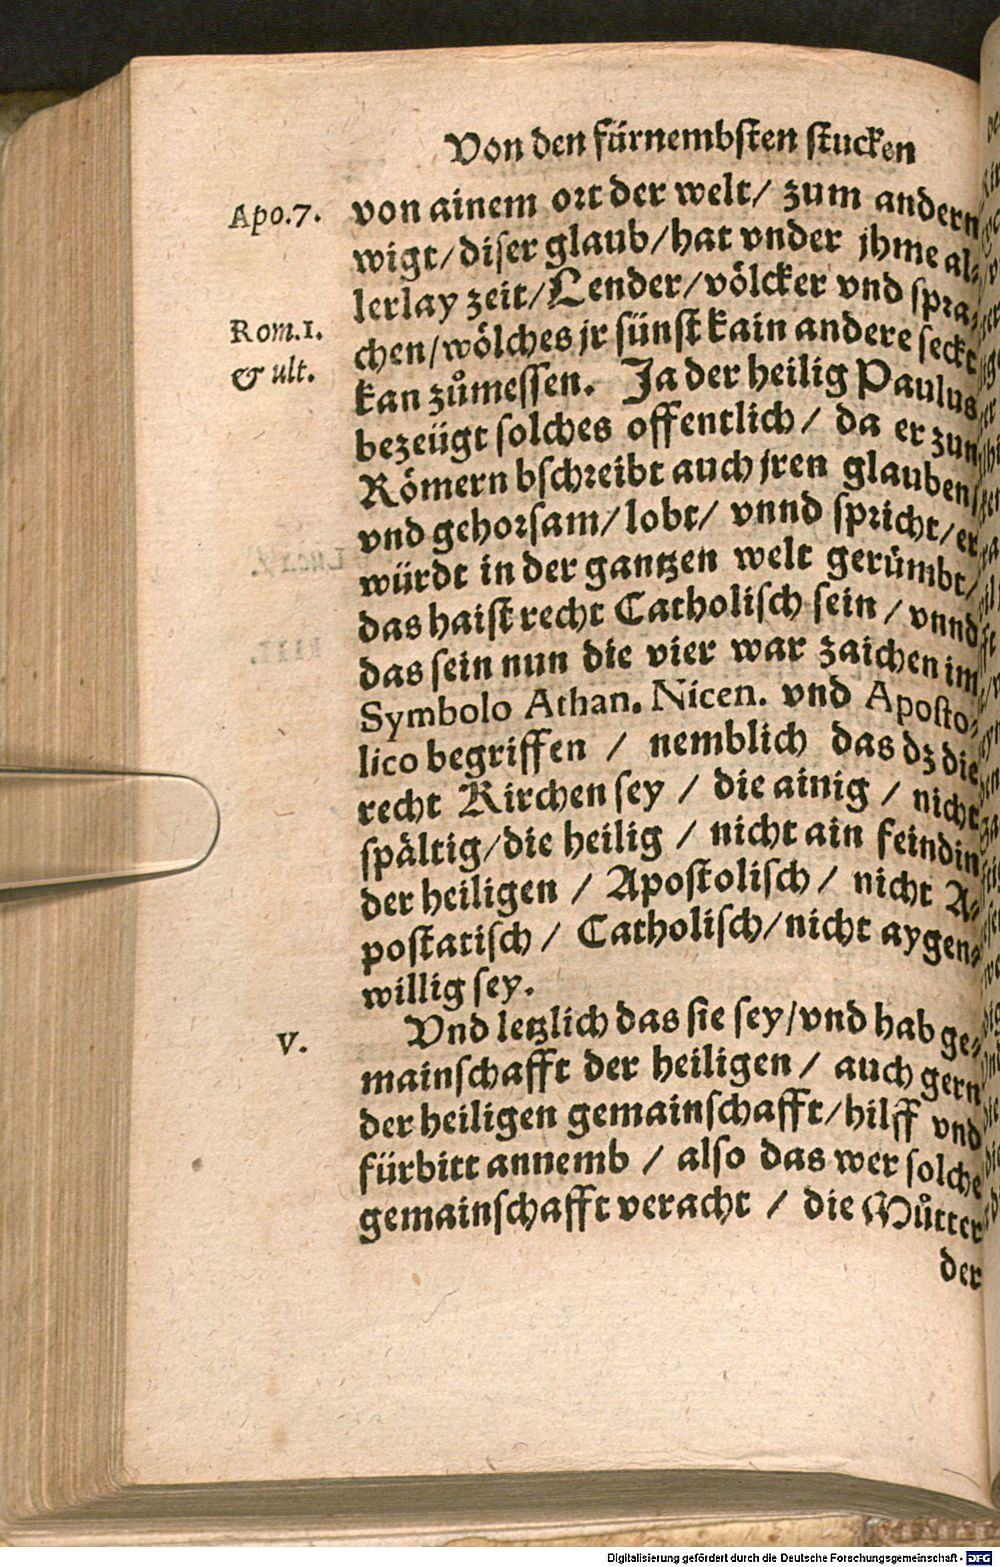 Von den fürnembsten stucken
Apo.7.
von ainem ort der welt/ zum andern
wigt/diser glaub/hat vnder jhme al-
lerlay zeit/Lender/völcker vnd spra-
Rom.1.
& ult.
chen/wölches jr sünst kain andere seckt
kan zůmessen. Ja der heilig Paulus
bezeügt solches offentlich/ da er zun
Römern bschreibt auch jren glauben/
vnd gehorsam/lobt/ vnnd spricht/er
würdt in der gantzen welt gerümbt/
das haist recht Catholisch sein / vnnd
das sein nun die vier war zaichen im
Symbolo Athan. Nicen. vnd Aposto-
lico begriffen / nemblich das dz die
recht Kirchen sey / die ainig / nicht
spältig/die heilig / nicht ain feindin
der heiligen / Apostolisch / nicht A-
postatisch / Catholisch/nicht aygen-
willig sey.
V.
Vnd letzlich das sie sey/vnd hab ge-
mainschafft der heiligen / auch gern
der heiligen gemainschafft/hilff vnd
fürbitt annemb / also das wer solche
gemainschafft veracht / die Můtter
der
Digitalisierung gefördert durch die Deutsche Forschungsgemeinschaft - DFG